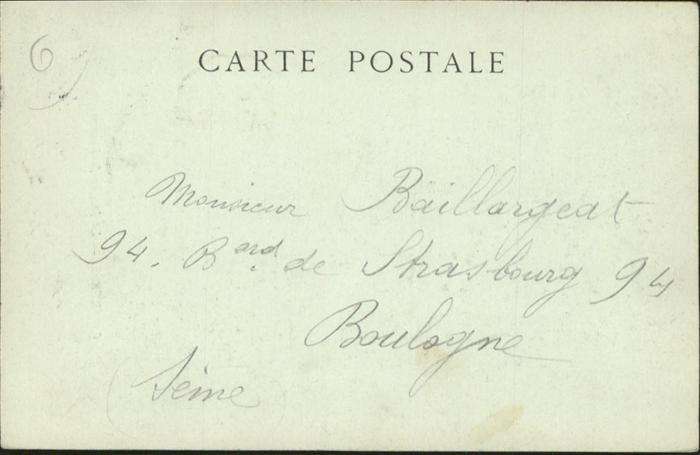 6
CARTE POSTALE
Monsieur Baillargeat
94. Bard de Strasbourg 94
Boulogne
(Seine)